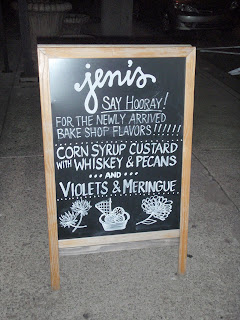 jeni's
SAY HOORAY!
FOR THE NEWLY ARRIVED
BAKE SHOP FLAVORS!!!!!!
CORN SYRUP CUSTARD
WITH WHISKEY & PECANS
AND
VIOLETS & MERINGUE